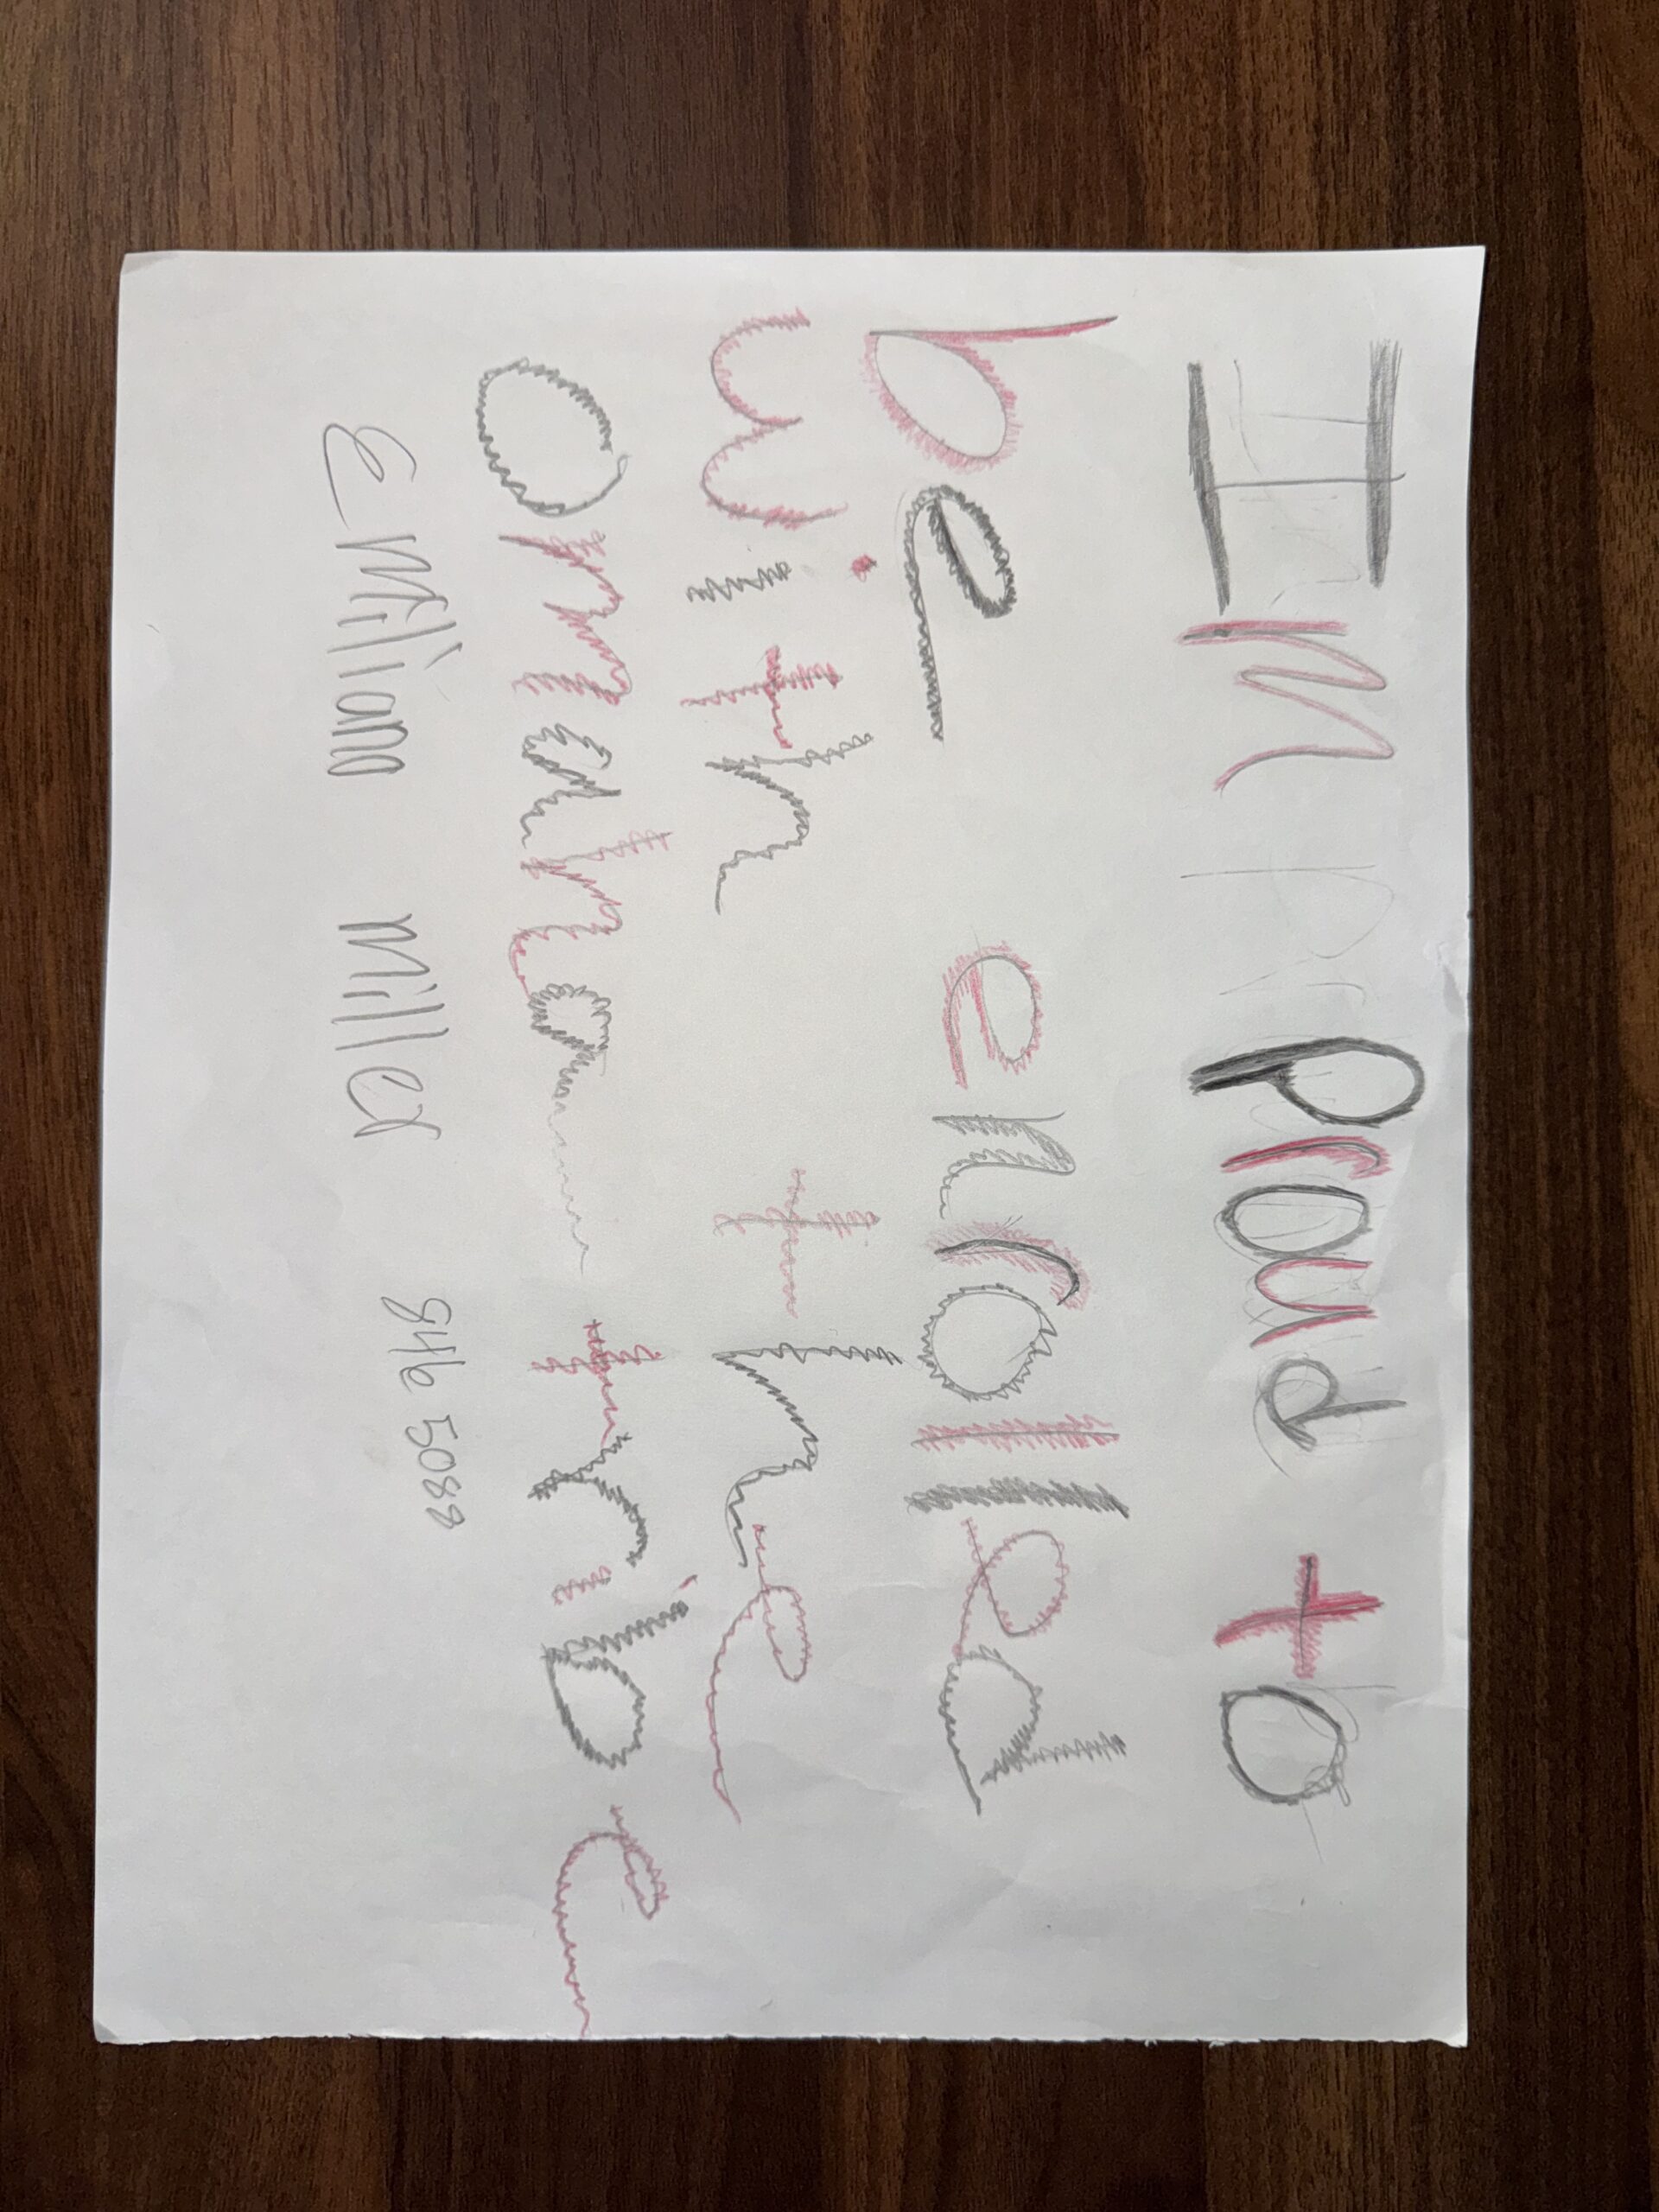 Im proud to
be enrolled
with the
Omaha tribe
Emiliana Miller 846 5088